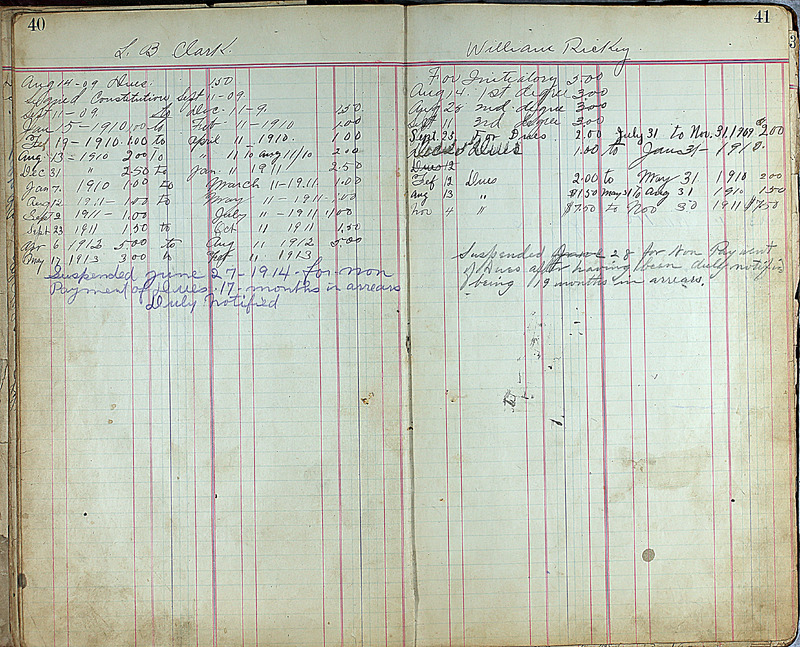 40
L. B. Clark.
Aug 14-09 Dues. 150
Signed Constitution Sept 11-09.
Sept 11-09 to Dec. 11-9. 150
Jan 5-1910 1.00 to Feb-11-1910 1.00
Feb 19-1910. 1.00 to April 11-1910. 1.00
Aug-13-1910 200 to " 11 to Aug 11/10 2.00
Dec 31 " 2.50 to Jan. 11 1911 2.50
Jan 7. 1910 1.00 to March 11-1911 1.00
Aug 12 1911-1.00 to May 11-1911-1.00
Sept 2 1911-1.00 July 11-1911 1.00
Sept 23 1911 1.50 to Oct 11 1911 1.50
Apr 6 1912 5.00 to Aug 11 1912 5.00
May 17 1913 3.00 to Feb 11 1913
Suspended June 27-1914. for non
Payment of Dues. 17. months in arrears
Duly Notified
41
William Rickey.
For Initiatory 5.00
Aug 14. 1st degree 3.00
Aug 28 2nd degree 3.00
Sept 11 3rd degree 3.00
Sept. 23, For Dues 2.00 July 31 to Nov. 31, 1909 $200
Dues 1.00 to Jan 31-1910.
Dues 12
Feb 12 Dues 2.00 to May 31 1910 200
Aug 13 " $1.50 May 31 to Aug 31 1910 1.50
Nov 4 " $7.50 to Nov 30 1911 $7.50
Suspended June 28 for Non Payment
of Dues after having been duly notified
being 19 months in arrears.